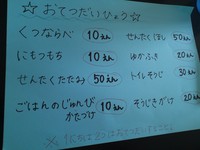 ☆ おてつだいひょう ☆
くつならべ 10えん せんたくほし 50えん
にもつもち 10えん ゆかふき 20えん
せんたくたたみ 50えん トイレそうじ 30えん
ごはんのじゅんび
かたづけ 10えん そうじきがけ 20えん